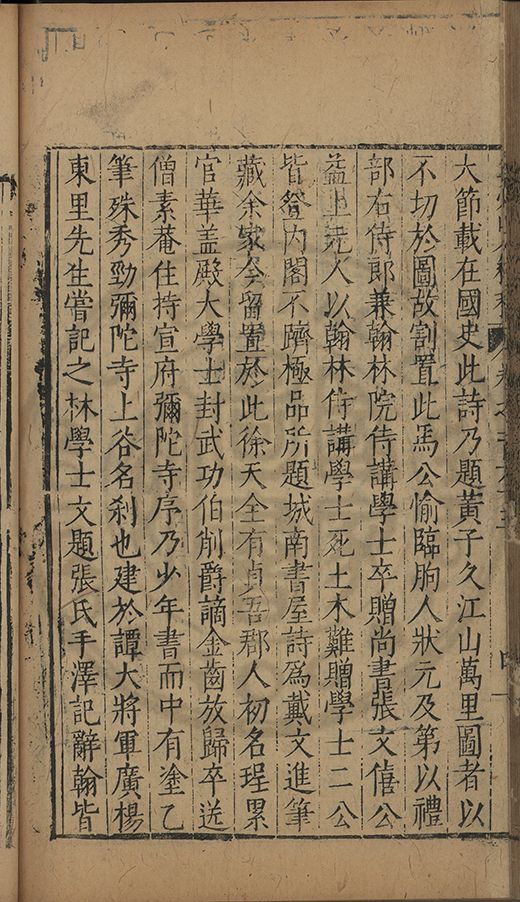 大節載在國史此詩乃題黃子久江山萬里圖者以
不切於圖故割置此馬公愉臨朐人狀元及第以禮
部右侍郎兼翰林院侍講學士卒贈尚書張文僖公
益上元人以翰林侍講學士死土木難贈學士二公
皆叅內閣不躋極品所題城南書屋詩爲戴文進筆
藏余家今留置於此徐天全有貞吾郡人初名珵累
官華盖殿大學士封武功伯削爵謫金齒放歸卒送
僧素菴住持宣府彌陀寺序乃少年書而中有塗乙
筆殊秀勁彌陀寺上谷名刹也建於譚大將軍廣楊
東里先生嘗記之林學士文題張氏手澤記辭翰皆